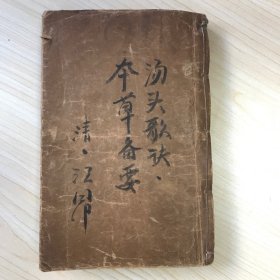 汤头歌诀、
本草备要
清、汪昂